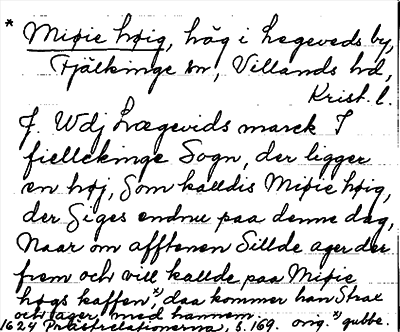 * Miöie höig, hög i Legeveds by,
Fjälkinge sn, Villands hd,
Krist. l.
J. Wdj Lægevids marck I
fielckinge Sogn, der ligger
en høj, Som kalldis Miöie höig,
der Siges endnu paa denne dag,
Naar om afftenen Sillde ager der
frem och vill kallde paa Miöie
høgs kaffen*), daa kommer han Strax
och tager, med hannem.
1624 Prästrelationerna, s. 169. orig. *) gubbe.